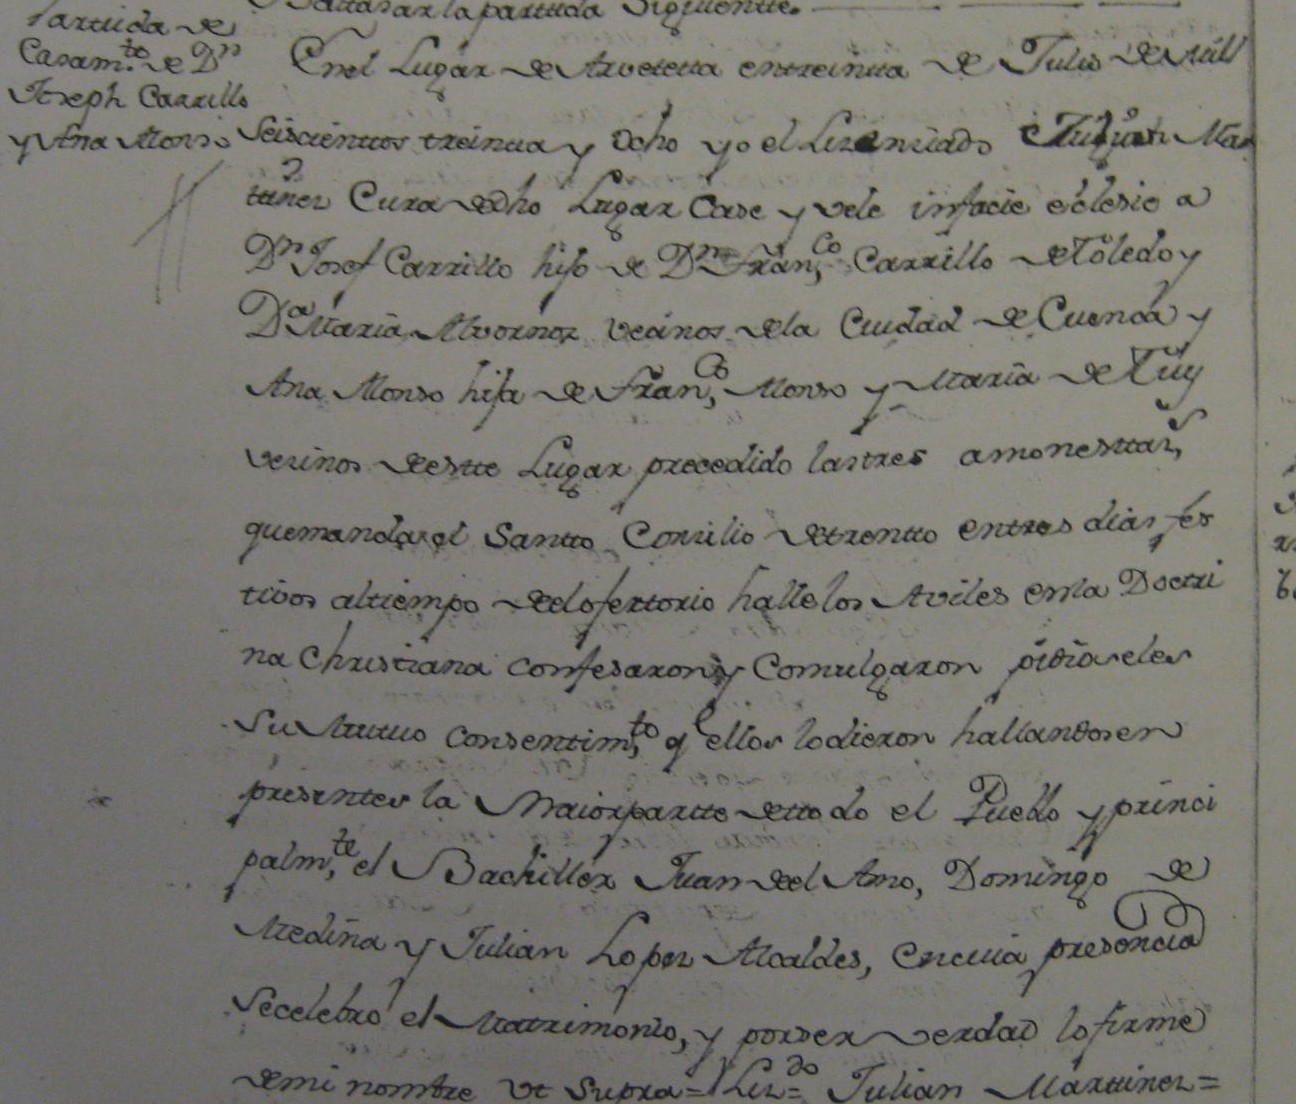 Partida de
Casam.to de Dn
Joseph Carrillo
y Ana Alonso
Baltasar la partida siguientte.
En el Lugar de Arvetetta en treintta de Julio de mill
Seiscienttos treintta y ocho yo el Lizenciado Julian Mar
tinez Cura de dho Lugar Case y vele infacie eclesie a
Dn Josef Carrillo hijo de Dn Fran,co Carrillo de Toledo y
Da Maria Alvornoz vecinos de la Ciudad de Cuenca y
Ana Alonso hija de Fran,co Alonso y Maria de Tuy
vezinos de estte Lugar precedido las tres amonesttas,
que manda el Santto Consilio de trentto en tres dias fes
tivos al tiempo del ofertorio halle los Aviles en la Doctri
na Christiana confesaron y Comulgaron pidioseles
su Mutuo consentim,to q ellos lo dieron hallandosen
presentes la Maior partte de tto do el Pueblo y princi
palm,te el Bachiller Juan del Amo, Domingo de
Medina y Julian Lopez Alcaldes, en cuia presencia
se celebro el Mattrimonio, y por ser verdad lo firme
de mi nombre ut supra = Liz.do Julian Marttinez =